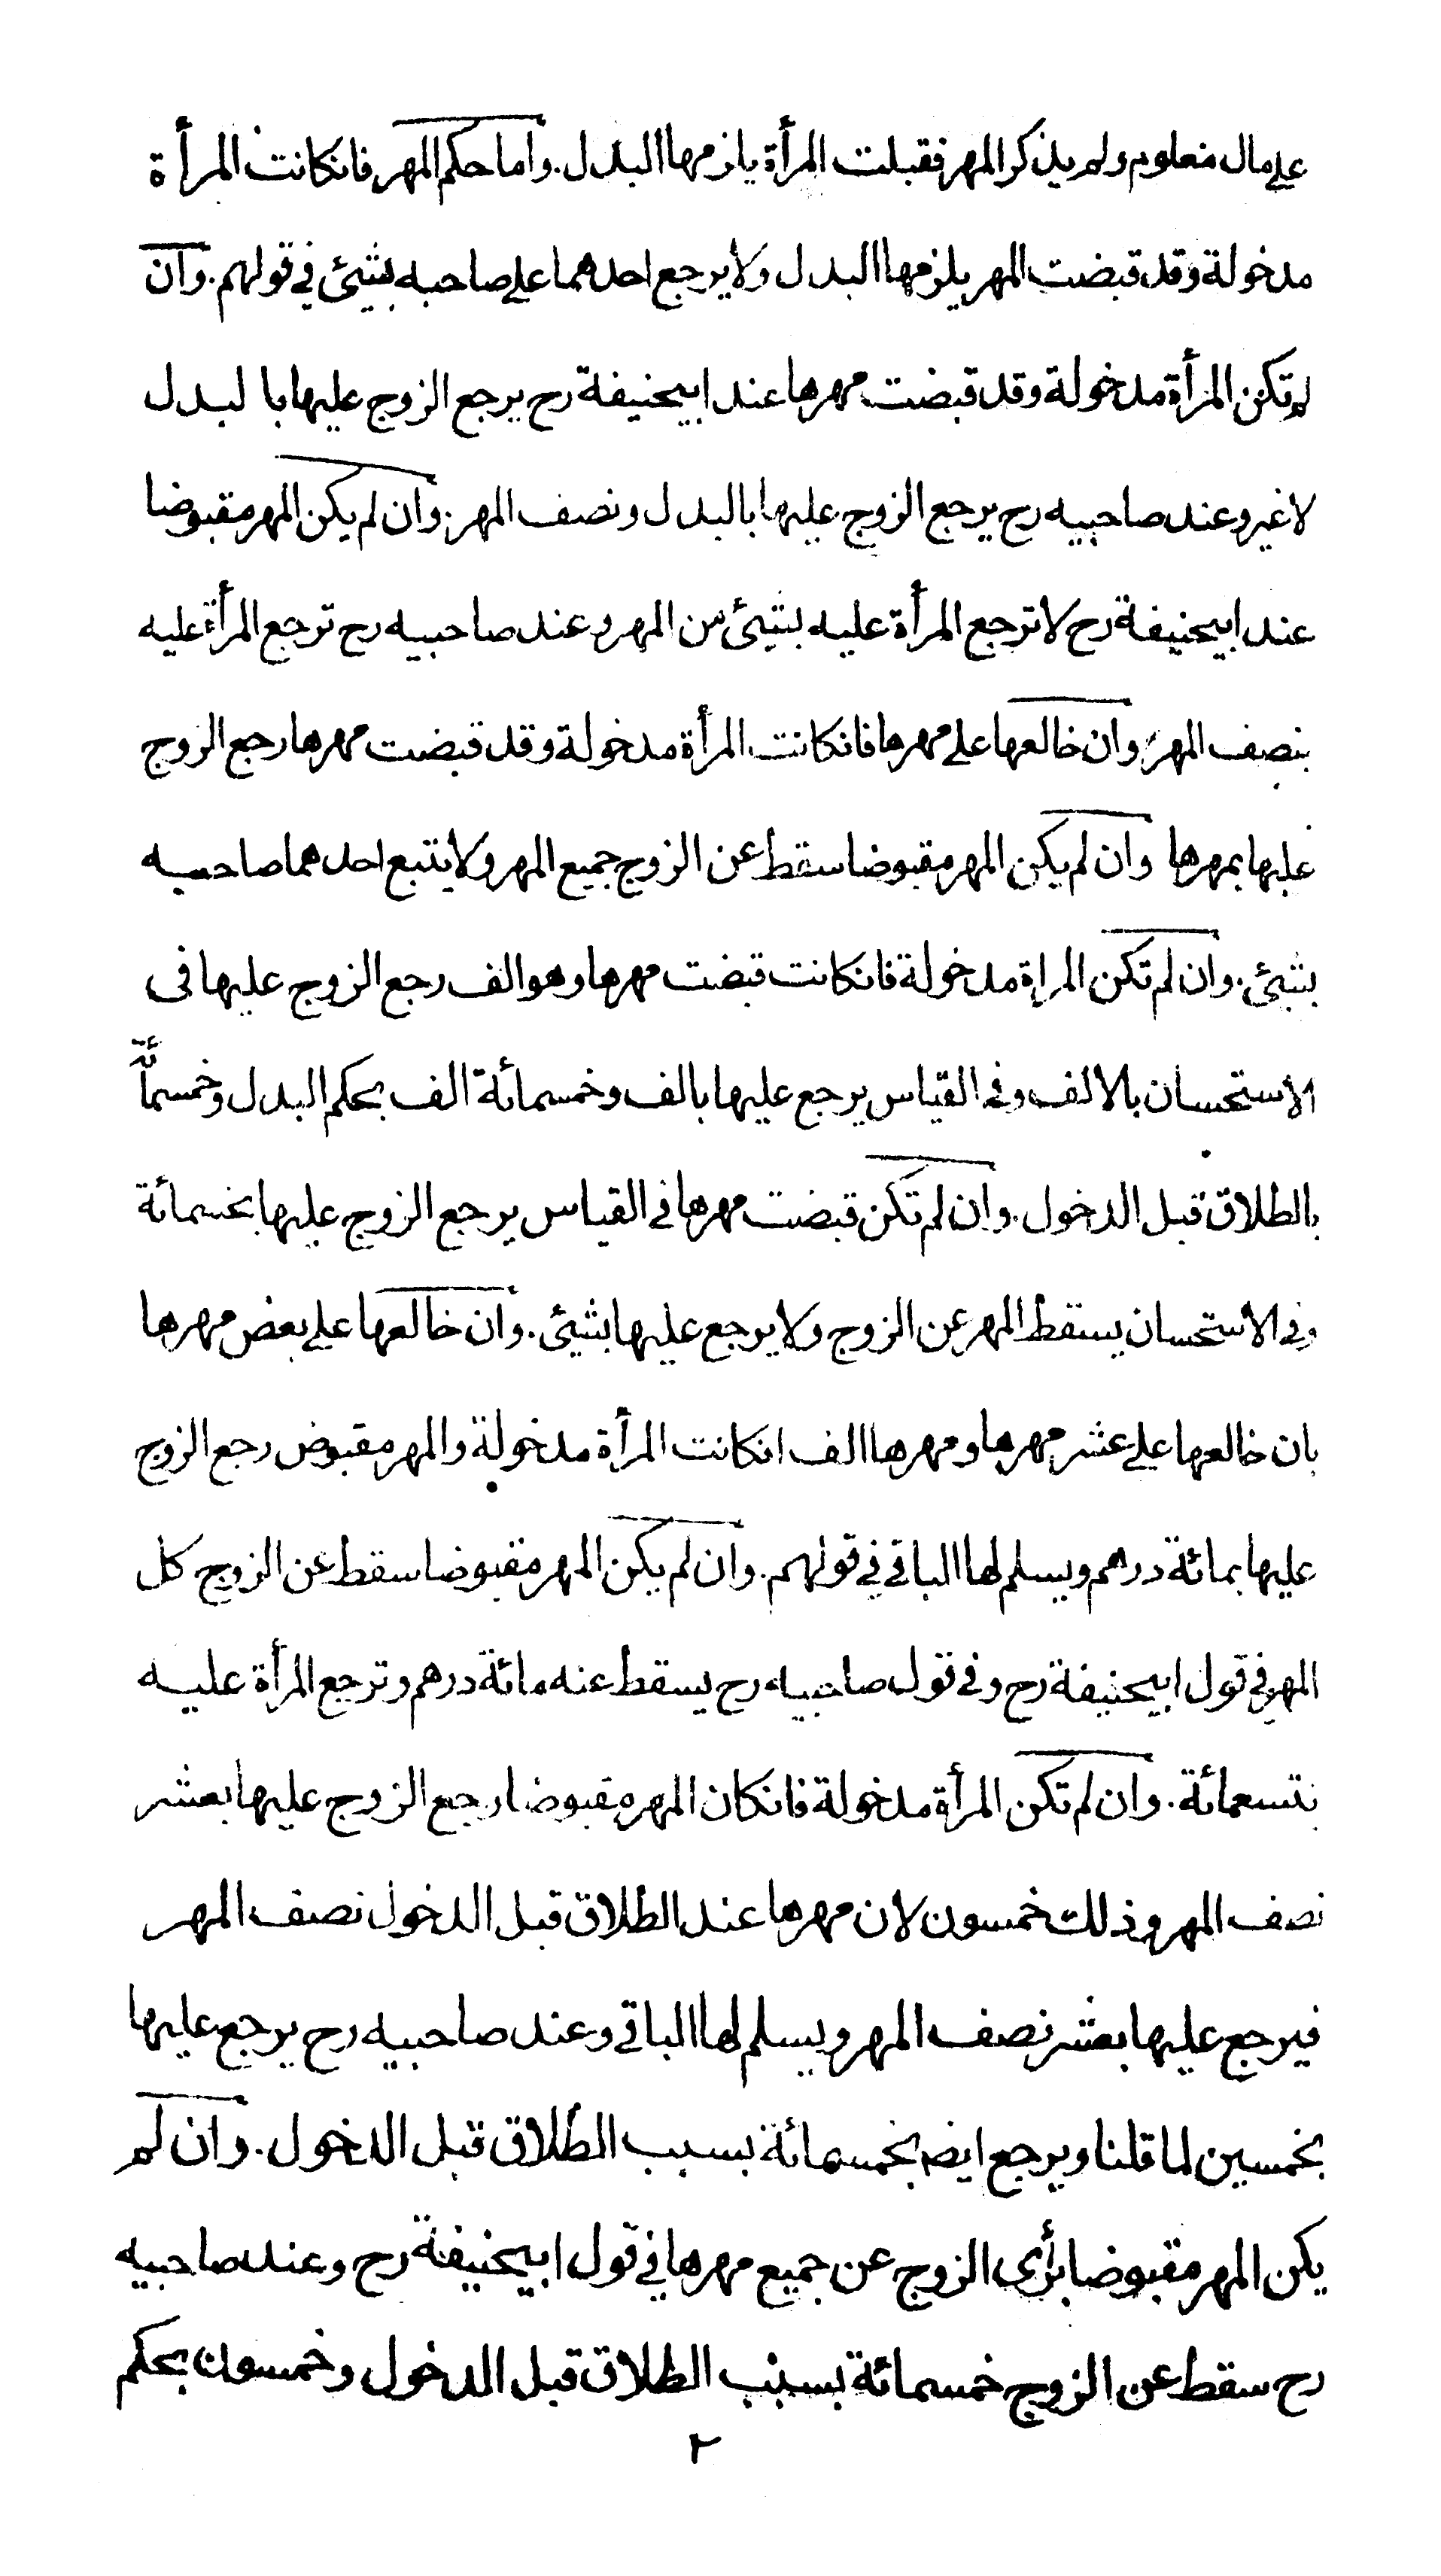 على مال معلوم ولم يذكر المهر فقبلت المرأة يلزمها البدل. واما حكم المهر فانكانت المرأة
مدخولة وقد قبضت المهر يلزمها البدل ولا يرجع احدهما على صاحبه بشيئ في قولهم. وان
لم تكن المرأة مدخولة وقد قبضت مهرها عند ابيحنيفة رح يرجع الزوج عليها با لبدل
لا غير وعند صاحبيه رح يرجع الزوج عليها بالبدل ونصف المهر. وان لم يكن المهر مقبوضا
عند ابيحنيفة رح لا ترجع المرأة عليه بشيئ من المهر وعند صاحبيه رح ترجع المرأة عليه
بنصف المهر. وان خالعها على مهرها فانكانت المرأة مدخولة وقد قبضت مهرها رجع الزوج
عليها بمهرها وان لم يكن المهر مقبوضا سقط عن الزوج جميع المهر ولا يتبع احدهما صاحبه
بشيئ. وان لم تكن المراة مدخولة فانكانت قبضت مهرها وهو الف رجع الزوج عليها فى
الاستحسان بالالف وفي القياس يرجع عليها بالف وخمسمائة الف بحكم البدل وخمسمائة
بالطلاق قبل الدخول. وان لم تكن قبضت مهرها في القياس يرجع الزوج عليها بخمسمائة
وفي الاستحسان يسقط المهر عن الزوج ولا يرجع عليها بشيئ. وان خالعها على بعض مهرها
بان خالعها على عشر مهرها ومهرها الف انكانت المرأة مدخولة والمهر مقبوض رجع الزوج
عليها بمائة درهم ويسلم لها الباقي في قولهم. وان لم يكن المهر مقبوضا سقط عن الزوج كل
المهر في قول ابيحنيفة رح وفي قول صاحبيه رح يسقط عنه مائة درهم وترجع المرأة عليه
بتسعمائة. وان لم تكن المرأة مدخولة فانكان المهر مقبوضا رجع الزوج عليها بعشر
نصف المهر وذلك خمسون لان مهرها عند الطلاق قبل الدخول نصف المهر
فيرجع عليها بعشر نصف المهر ويسلم لها الباقي وعند صاحبيه رح يرجع عليها
بخمسين لما قلنا ويرجع ايضا بخمسمائة بسبب الطلاق قبل الدخول. وان لم
يكن المهر مقبوضا برئ الزوج عن جميع مهرها في قول ابيحنيفة رح وعند صاحبيه
رح سقط عن الزوج خمسمائة بسبب الطلاق قبل الدخول وخمسون بحكم
٢